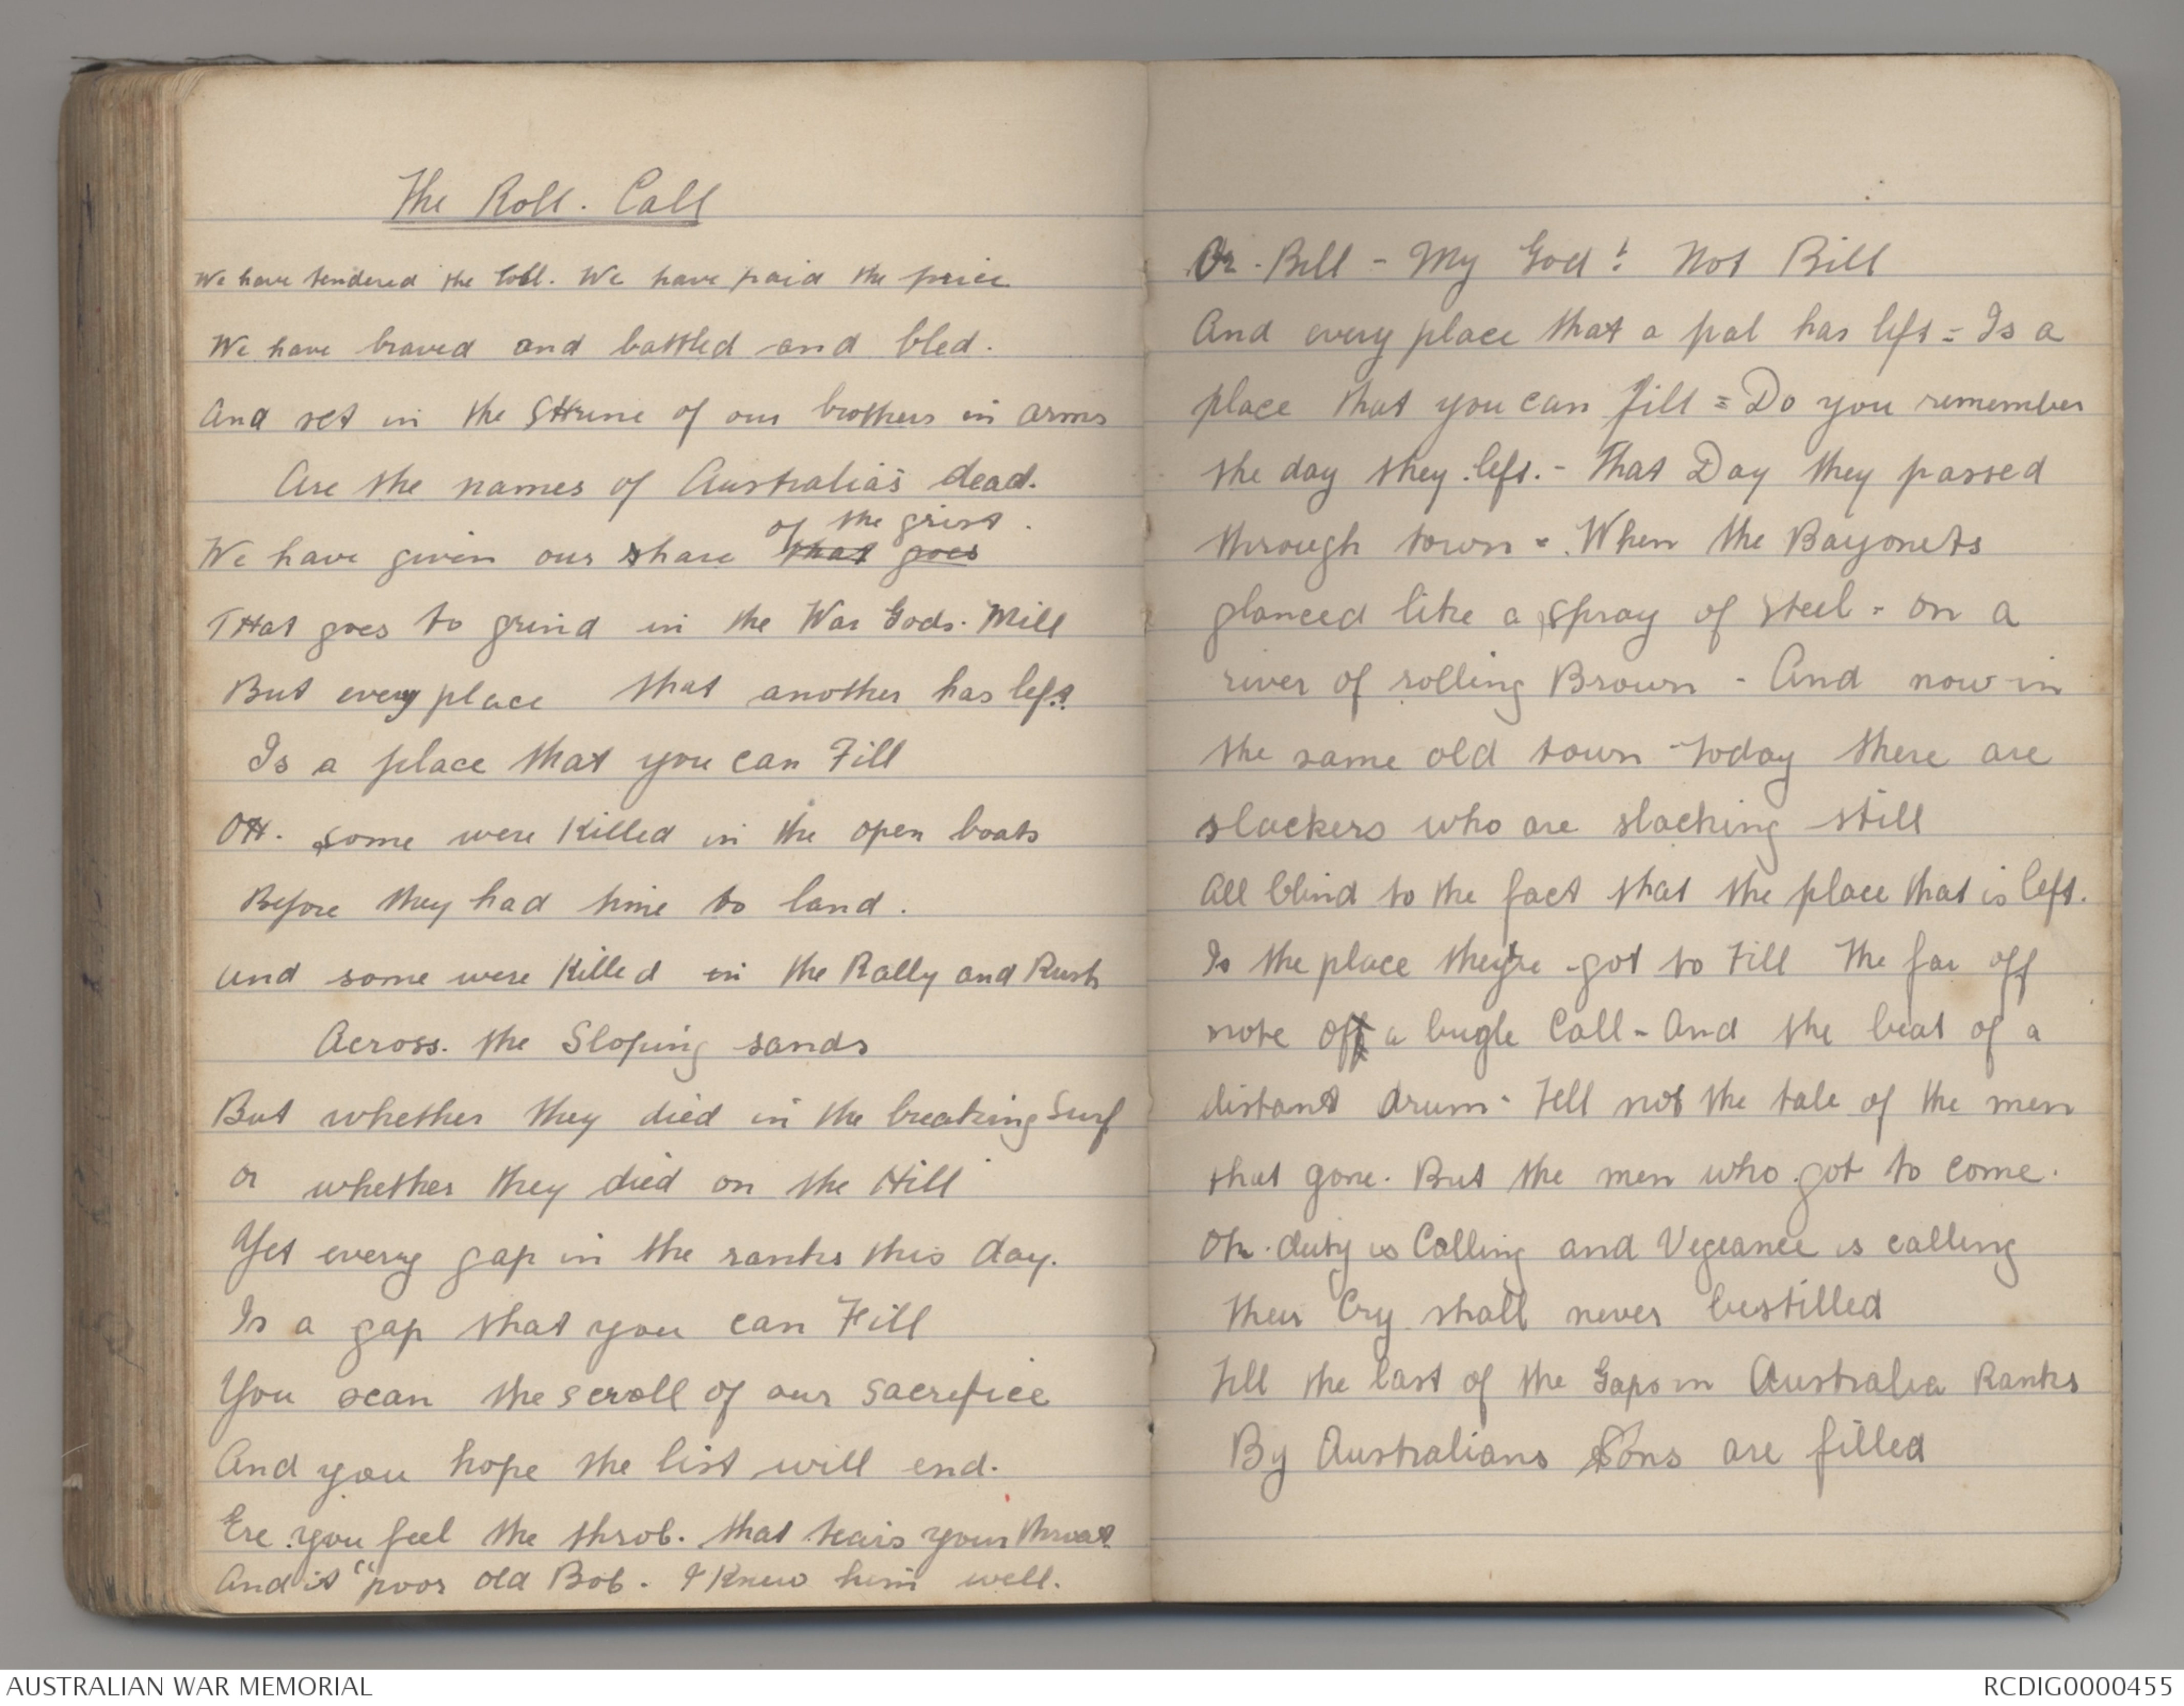 The Roll. Call
We have tendered the toll. We have paid the price
We have braved and battled and bled.
And set in the SHrine of our brothers in arms
Are the names of Australia's dead.
of the grist.
We have given our share that goes
THat goes to grind in the War Gods. Mill
But every place that another has left.
Is a place that you can Fill
OH. some were Killed in the open boats
Before they had time to land.
And some were Killed in the Rally and Rush
Across. the Sloping sands
But whether they died in the breaking Surf
Or whether they died on the Hill
Yet every gap in the ranks this day.
Is a gap that you can Fill
You scan the scroll of our sacrefice
And you hope the list will end.
Ere you feel the throb. that tears your throat
And it "poor old Bob. I Knew him well.
Or. Bill - My God! Not Bill
And every place that a pal has left = Is a
place that you can fill = Do you remember
the day they left. - That Day they passed
through town = When the Bayonets
glanced like a spray of steel = on a
river of rolling Brown - And now in
the same old town - today there are
slackers who are slacking still
All blind to the fact that the place that is left.
Is the place they're got to Fill The far off
note off a bugle Call - And the beat of a
distant drum - Tell not the tale of the men
that gone. But the men who got to come.
Oh. duty is Calling and Vegeance is calling
Their Cry shall never bestilled
Till the last of the Gaps in Australia Ranks
By Australians Sons are filled
AUSTRALIAN WAR MEMORIAL
RCDIG0000455